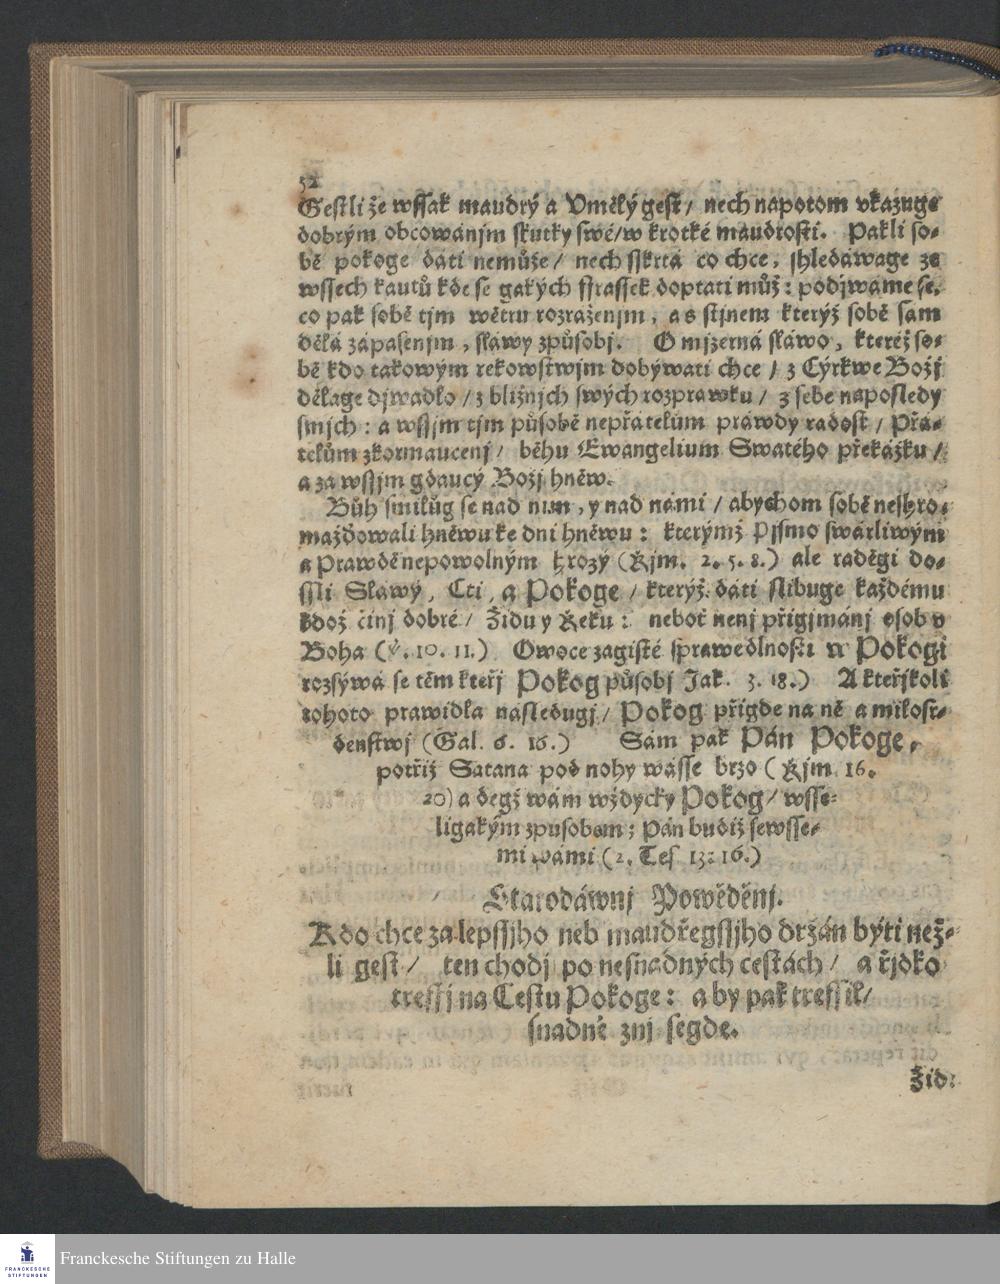 52
Gestli že wssak maudrý a Vmělý gest / nech napotom vkazuge
dobrým obcowánjm skutky swé / w krotké maudrosti. Pakli so-
bě pokoge dáti nemůže / nech sskrtá co chce, shledáwage ze
wssech kautů kde se gakých ffrassek doptati můž: podjwáme se,
co pak sobě tjm wětru rozraženjm, a s stjnem kterýž sobě sám
dělá zápasenjm, sláwy způsobj. O mjzerná sláwo, kteréž so-
bě kdo takowým rekowstwjm dobýwati chce / z Cýrkwe Božj
dělage djwadlo / z bližnjch swých rozprawku / z sebe naposledy
smjch: a wssjm tjm působě nepřátelům prawdy radost / Přá-
telům zkormaucenj / běhu Ewangelium Swatého překážku /
a za wssjm gdaucý Božj hněw.
Bůh smilůg se nad nim, y nad námi / abychom sobě neshro-
mažďowali hněwu ke dni hněwu: kterýmž Pjsmo swárliwým
a Prawdě nepowolným hrozý (Řjm. 2. 5. 8.) ale raděgi do-
ssli Sláwy, Cti, a Pokoge / kterýž dáti slibuge každému
kdož činj dobré / Židu y Řeku: neboť nenj přigjmánj osob v
Boha (v. 10. 11.) Owoce zagisté sprawedlnosti w Pokogi
rozsýwá se těm kteřj Pokog působj Jak. 3. 18.) A kteřjkoli
tohoto prawidla následugj / Pokog přigde na ně a milosr-
denstwj (Gal. 6. 16.) Sám pak Pán Pokoge,
potřiž Satana pod nohy wásse brzo (Řjm. 16.
20) a degž wám wždycky Pokog / wsse-
ligakým zpusobem; Pán budiž sewsse-
mi wámi (2. Tes 13: 16.)
Starodáwnj Powěděnj.
Kdo chce za lepssjho neb maudřegssjho držán býti než-
li gest / ten chodj po nesnadných cestách / a řjdko
treffj na Cestu Pokoge: a by pak treffil /
snadně znj segde.
Žid:
FRANCKESCHE
STIFTUNGEN
Franckesche Stiftungen zu Halle